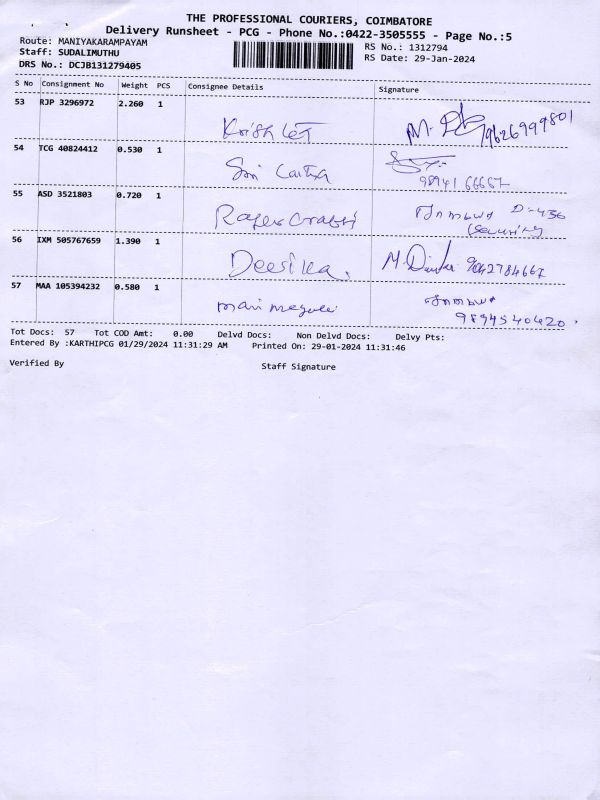 THE PROFESSIONAL COURIERS, COIMBATORE
Delivery Runsheet - PCG - Phone No.:0422-3505555 - Page No.:5
Route: MANIYAKARAMPAYAM
RS No.: 1312794
Staff: SUDALIMUTHU
RS Date: 29-Jan-2024
DRS No.: DCJB131279405
S No Consignment No Weight PCS Consignee Details Signature
53 RJP 3296972 2.260 1
9626999801
54 TCG 40824412 0.530 1
Sri
98941 66667
55 ASD 3521803 0.720 1
D-436
(Security)
56 IXM 505767659 1.390 1
Deesika. M. 9042784667
57 MAA 105394232 0.580 1
9894540420.
Tot Docs: 57 Tot COD Amt: 0.00 Delvd Docs: Non Delvd Docs: Delvy Pts:
Entered By :KARTHIPCG 01/29/2024 11:31:29 AM Printed On: 29-01-2024 11:31:46
Verified By Staff Signature